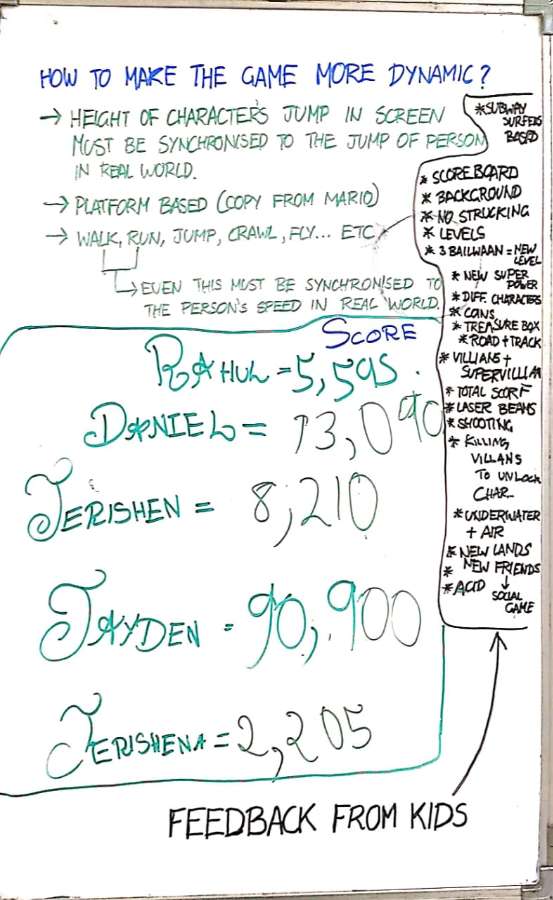 HOW TO MAKE THE GAME MORE DYNAMIC?
→ HEIGHT OF CHARACTER'S JUMP IN SCREEN
MUST BE SYNCHRONISED TO THE JUMP OF PERSON
IN REAL WORLD.
→ PLATFORM BASED (COPY FROM MARIO)
→ WALK, RUN, JUMP, CRAWL, FLY... ETC
→ EVEN THIS MUST BE SYNCHRONISED TO
THE PERSON'S SPEED IN REAL WORLD.
SCORE
RAHUL = 5,595.
DANIEL = 13,090
JERISHEN = 8,210
JAYDEN = 90,900
JERISHENA = 2,205
* SUBWAY
SURFERS
BASED
* SCOREBOARD
* BACKGROUND
* NO STRUCKING
* LEVELS
* 3 BAILWAAN = NEW
LEVEL
* NEW SUPER
POWER
* DIFF. CHARACTERS
* COINS
* TREASURE BOX
* ROAD + TRACK
* VILLIANS +
SUPERVILLIAN
* TOTAL SCORE
* LASER BEAMS
* SHOOTING
* KILLING
VILLANS
TO UNLOCK
CHAR..
* UNDERWATER
+ AIR
* NEW LANDS
* NEW FRIENDS
↓
* ACID
SOCIAL
GAME
FEEDBACK FROM KIDS